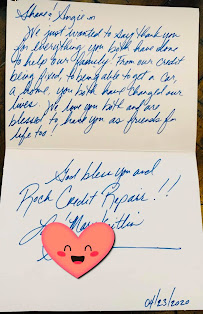 Shane & Angie
We just wanted to say thank you
for everything you both have done
to help our family! From our credit
being fixed, to being able to get a car,
a home, you both have changed our
lives. We love you both and are
blessed to have you as friends for
life too!
God bless you and
Rock Credit Repair!!!
09/23/2020